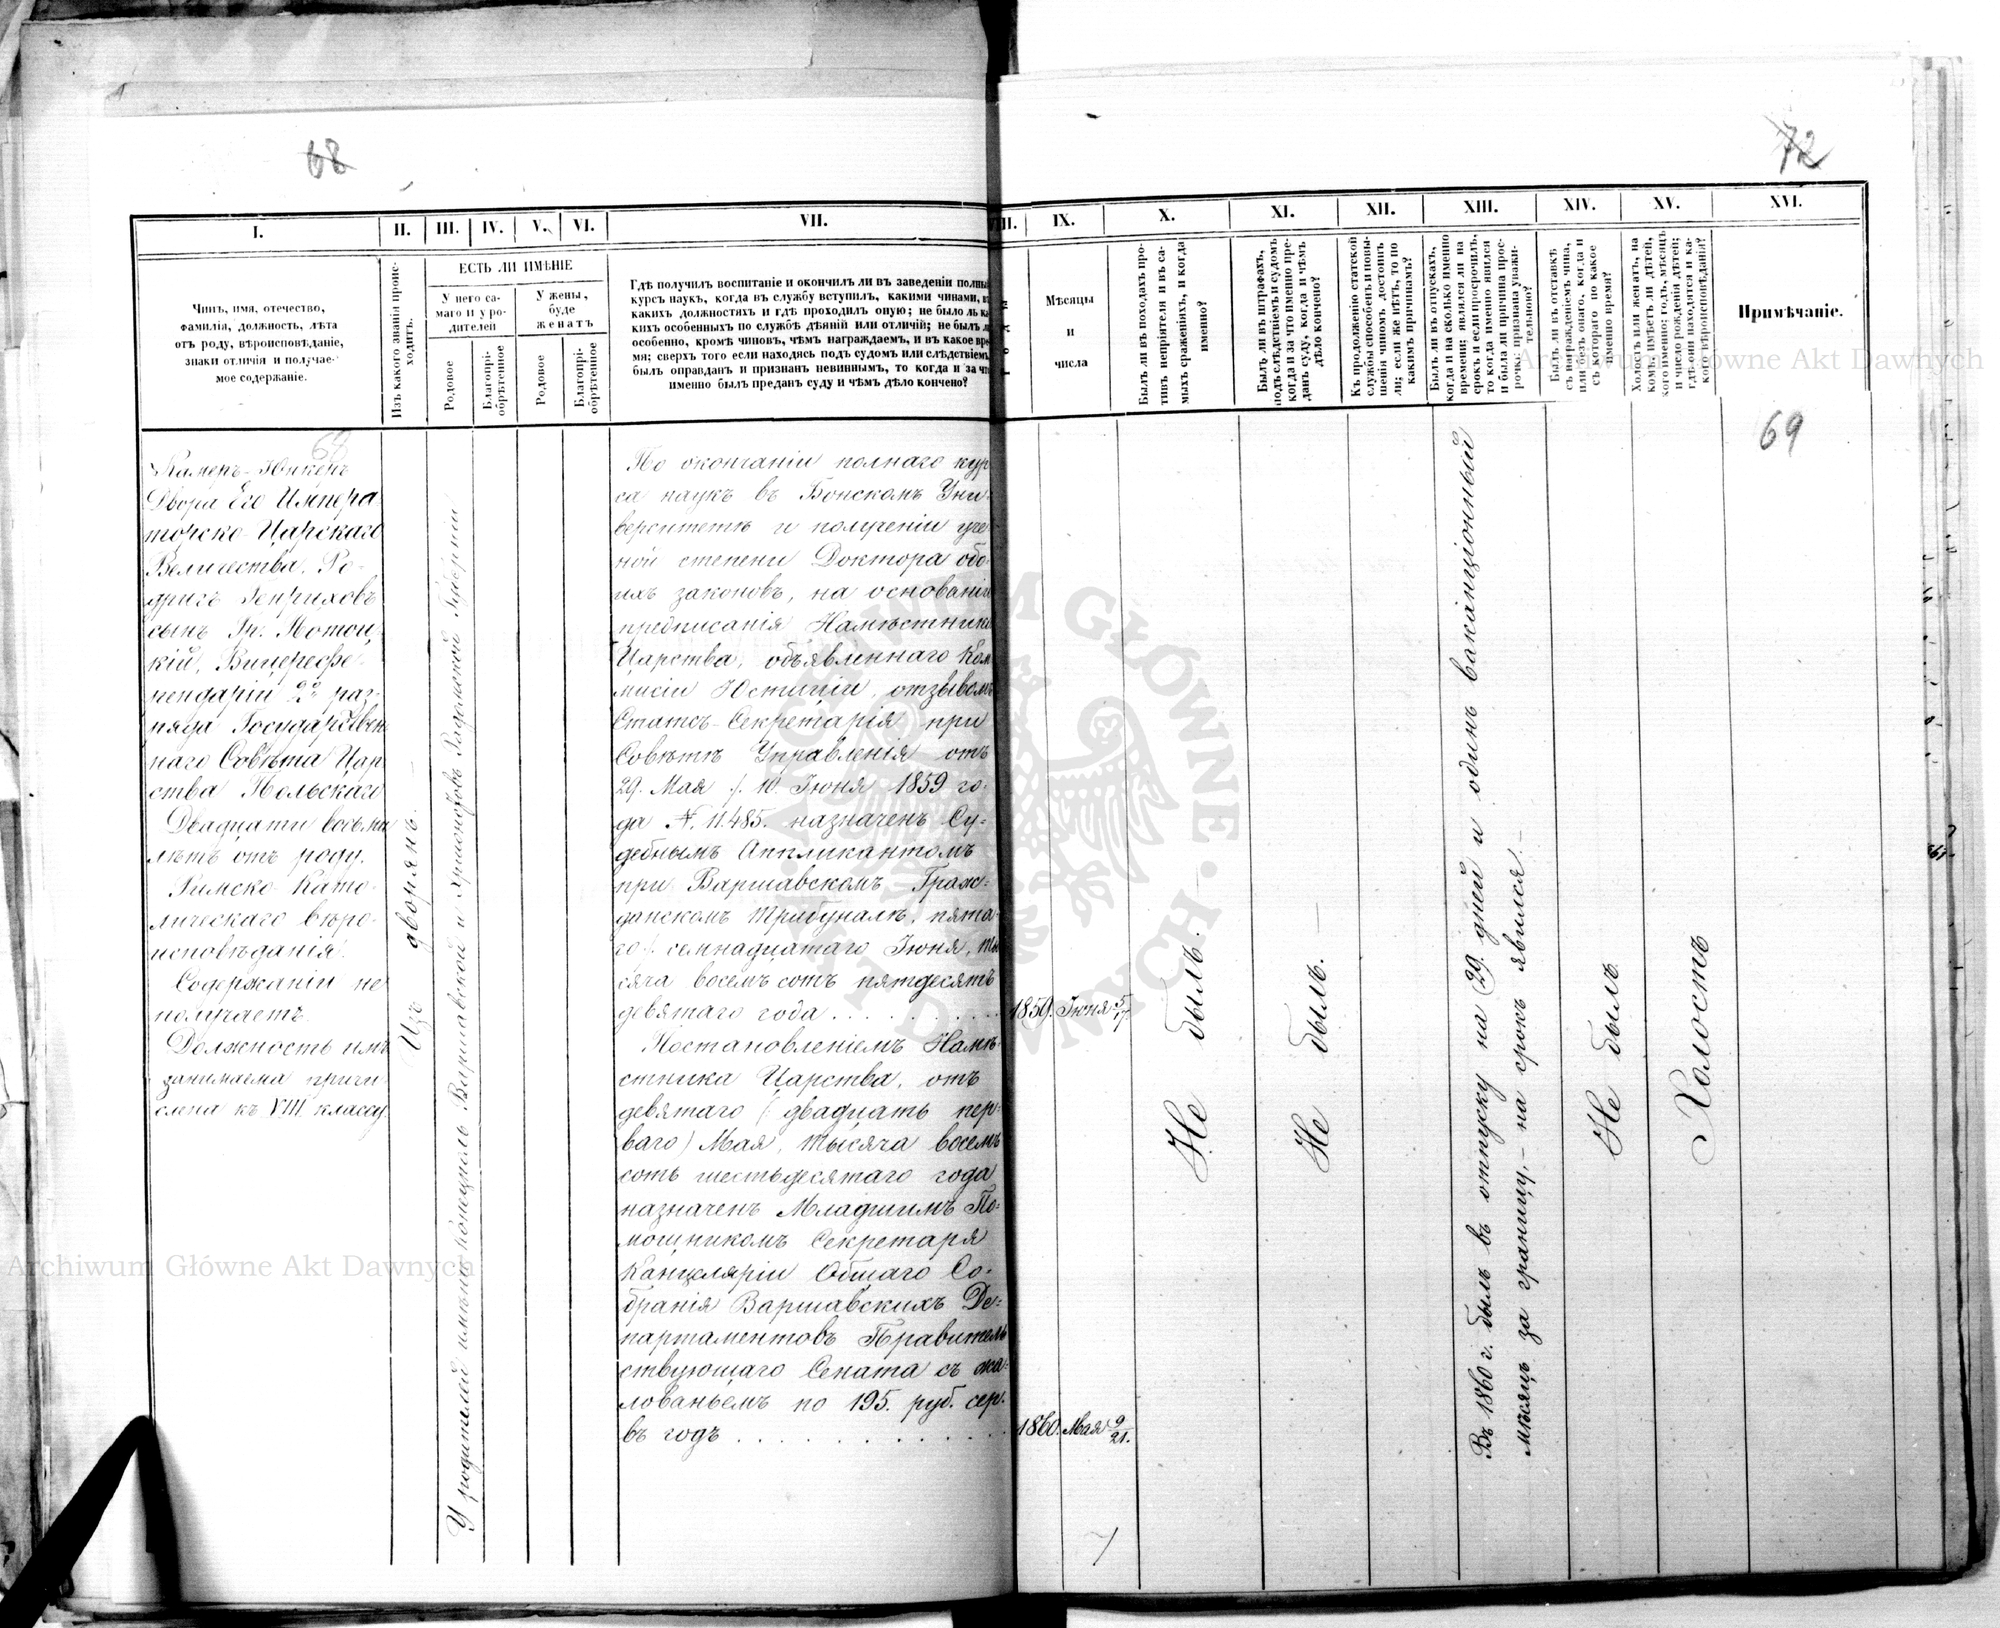 68
72
I.
II.
III.
IV.
V.
VI.
VII.
VIII.
IX.
X.
XI.
XII.
XIII.
XIV.
XV.
XVI.
Чинъ, имя, отечество,
фамилія, должность, лѣта
отъ роду, вѣроисповѣданіе,
знаки отличія и получае-
мое содержаніе.
Изъ какого званія проис-
ходитъ.
ЕСТЬ ЛИ ИМѢНІЕ
У него са-
маго и у ро-
дителей
У жены,
буде
женатъ
Родовое
Благопрі-
обрѣтенное
Родовое
Благопрі-
обрѣтенное
Гдѣ получилъ воспитаніе и окончилъ ли въ заведеніи полный
курсъ наукъ, когда въ службу вступилъ, какими чинами, въ
какихъ должностяхъ и гдѣ проходилъ оную; не было ль ка-
кихъ особенныхъ по службѣ дѣяній или отличій; не былъ ли
особенно, кромѣ чиновъ, чѣмъ награждаемъ, и въ какое вре-
мя; сверхъ того если находясь подъ судомъ или слѣдствіемъ,
былъ оправданъ и признанъ невиннымъ, то когда и за что
именно былъ преданъ суду и чѣмъ дѣло кончено?
Мѣсяцы
и
числа
Былъ ли въ походахъ про-
тивъ непріятеля и въ са-
мыхъ сраженіяхъ, и когда
именно?
Былъ ли въ штрафахъ,
подъ слѣдствіемъ и судомъ
когда и за что именно пре-
данъ суду, когда и чѣмъ
дѣло кончено?
Къ продолженію статской
службы способенъ и повы-
шенія чиномъ достоинъ
ли; если же нѣтъ, то по
какимъ причинамъ?
Былъ ли въ отпускахъ,
когда и на сколько именно
времени; являлся ли на
срокъ и если просрочилъ,
то когда именно явился
и была ли причина прос-
рочки признана уважи-
тельною?
Былъ ли въ отставкѣ
съ награжденіемъ чина,
или безъ онаго, когда и
съ котораго по какое
именно время?
Холостъ или женатъ, на
комъ, имѣетъ ли дѣтей,
кого именно; годъ, мѣсяцъ
и число рожденія дѣтей;
гдѣ они находятся и ка-
кого вѣроисповѣданія?
Примѣчаніе.
69
Камеръ-Юнкеръ
Двора Его Импера
торско-Царскаго
Величества, Ро-
дригъ Генриховъ
сынъ Гр. Потоц-
кій, Вицерефе-
рендарій 2го раз-
ряда Государствен
наго Совѣта Цар
ства Польскаго
Двадцати восьми
лѣтъ отъ роду.
Римско-Като-
лическаго вѣро-
исповѣданія.
Содержанія не
получаетъ.
Должность имъ
занимаема причи
слена къ VIII классу
Изъ дворянъ.
У родителей имѣніе Концполь Варшавской и Хржонстовъ Радомской Губерніи
По окончаніи полнаго кур
са наукъ въ Бонскомъ Уни-
верситетѣ и полученіи уче
ной степени Доктора обо-
ихъ законовъ, на основаніи
предписанія Намѣстника
Царства, объявленнаго Ком
мисіи Юстиціи, отзывомъ
Статсъ-Секретарія при
Совѣтѣ Управленія отъ
29. Мая /. 10. Іюня 1859 го-
да №. 11.485. назначенъ Су-
дебнымъ Аппликантомъ
при Варшавскомъ Граж-
данскомъ Трибуналѣ, пята-
го /. семнадцатаго Іюня, ты
сяча восемъ сотъ пятдесятъ
девятаго года . . . . . . . .
1859. Іюня 5/17
Постановленіемъ Намѣ-
стника Царства, отъ
девятаго (двадцать пер-
ваго) Мая, тысяча восемъ
сотъ шестьдесятаго года
назначенъ Младшимъ По-
мощникомъ Секретаря
Канцеляріи Общаго Со-
бранія Варшавскихъ Де-
партаментовъ Правитель
ствующаго Сената съ жа-
лованьемъ по 195. руб. сер.
въ годъ . . . . . . . . . . . .
1860. Мая 9/21.
Не былъ.
Не былъ. —
Въ 1860 г. былъ въ отпуску на 29 дней и одинъ вакаціонный
мѣсяцъ за границу, – на срокъ явился. –
Не былъ.
Холостъ
Archiwum Główne Akt Dawnych
Archiwum Główne Akt Dawnych
ARCHIWUM GŁÓWNE AKT DAWNYCH